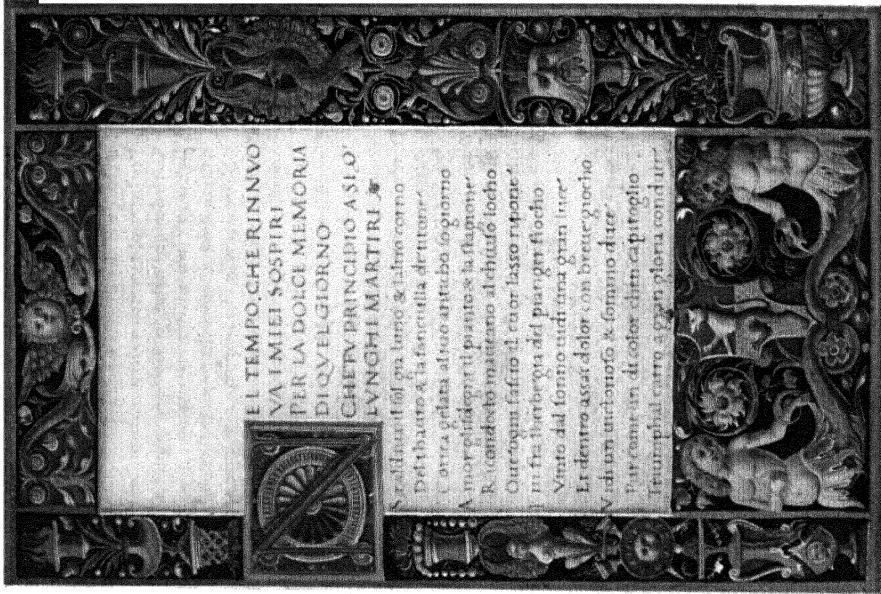 NEL TEMPO, CHE RINNVO
VA I MIEI SOSPIRI
PER LA DOLCE MEMORIA
DI QVEL GIORNO
CHE FV PRINCIPIO A SI LO
LVNGHI MARTIRI
Scaldaua il sol gia luno & laltro corno
Del thauro & la fanciulla de titone
Correa gelata al suo anticho sogiorno
Amor gli sdegni el pianto & la stagione
Ricondocto maueano al chiuso locho
Oue ogni fascio il cuor lasso ripone
In fra lherbe gia del pianger fiocho
Vinto dal sonno uidi una gran luce
Et dentro assai dolor con breue giocho
Vidi un uictorioso & sommo duce
Pur come un di color chen capitoglio
Triumphal carro a gran gloria conduce